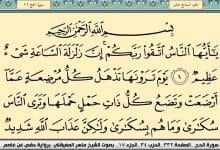 بِسْمِ ٱللَّهِ ٱلرَّحْمَٰنِ ٱلرَّحِيمِ
يَٰٓأَيُّهَا ٱلنَّاسُ ٱتَّقُوا۟ رَبَّكُمْ ۚ إِنَّ زَلْزَلَةَ ٱلسَّاعَةِ شَىْءٌ
عَظِيمٌ ١ يَوْمَ تَرَوْنَهَا تَذْهَلُ كُلُّ مُرْضِعَةٍ عَمَّآ
أَرْضَعَتْ وَتَضَعُ كُلُّ ذَاتِ حَمْلٍ حَمْلَهَا وَتَرَى ٱلنَّاسَ
سُكَٰرَىٰ وَمَا هُم بِسُكَٰرَىٰ وَلَٰكِنَّ عَذَابَ ٱللَّهِ شَدِيدٌ
سورة الحج الصفحة ٣٣٢. الحزب ٣٤. الجزء ١٧. بصوت الشيخ ماهر المعيقلي. برواية حفص عن عاصم